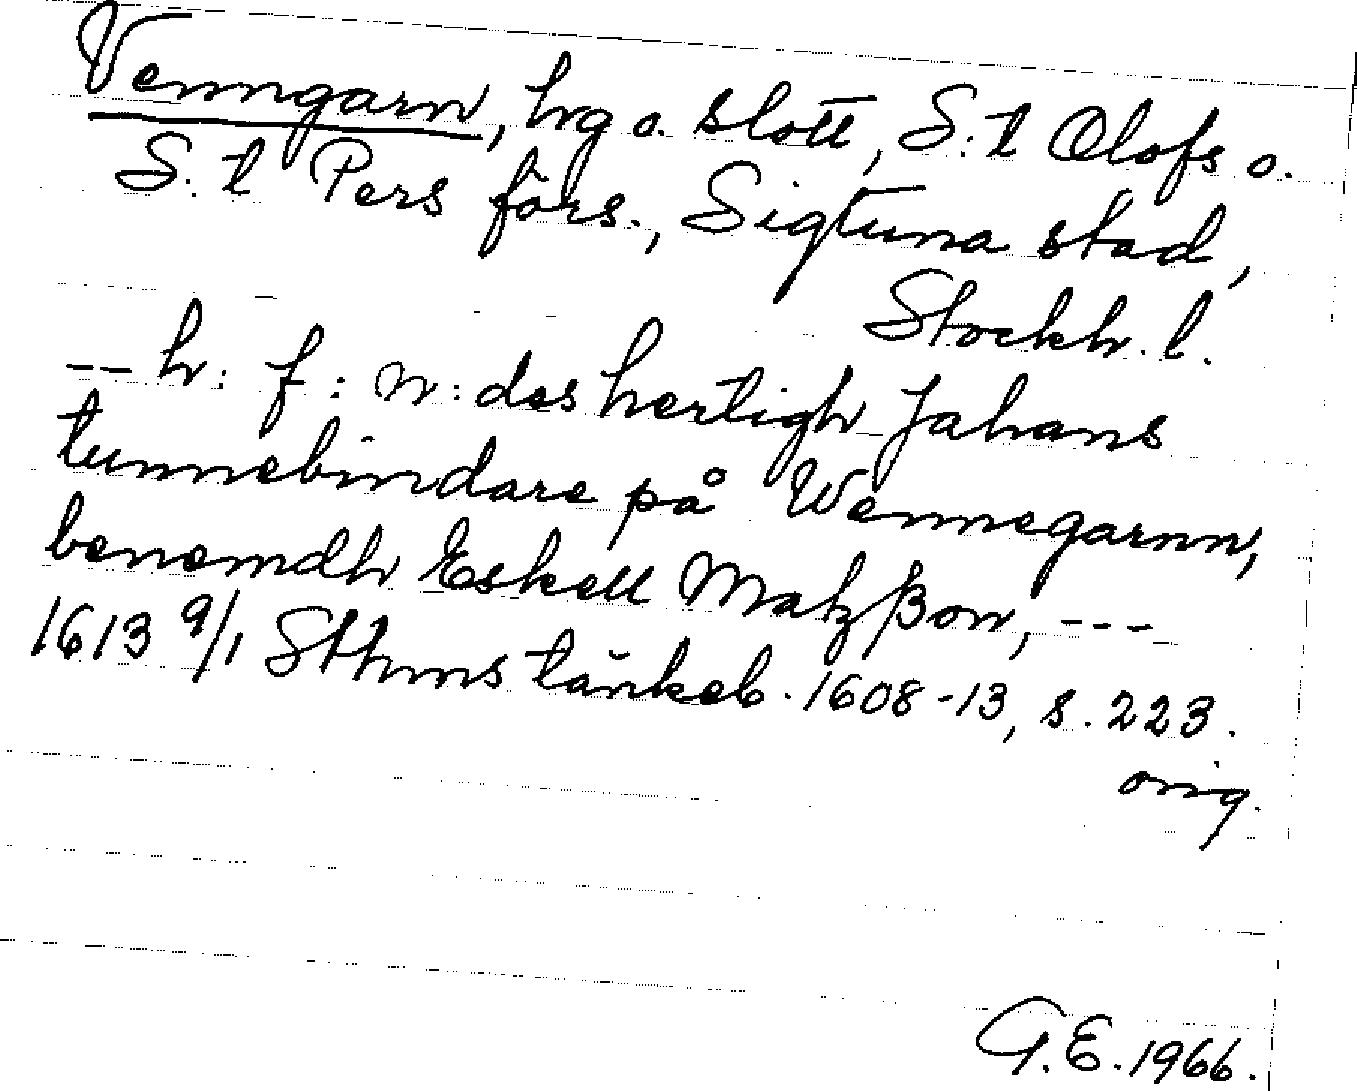 Venngarn, hrg o. slott, S:t Olofs o.
S:t Pers förs., Sigtuna stad,
Stockh. l.
-- h: f: n: des hertigh Johans
tunnebindare på Wennegarnn,
benemdh Eskell Matzßon, ---
1613 9/1 Sthms tänkeb. 1608-13, s. 223.
orig.
G.E. 1966.